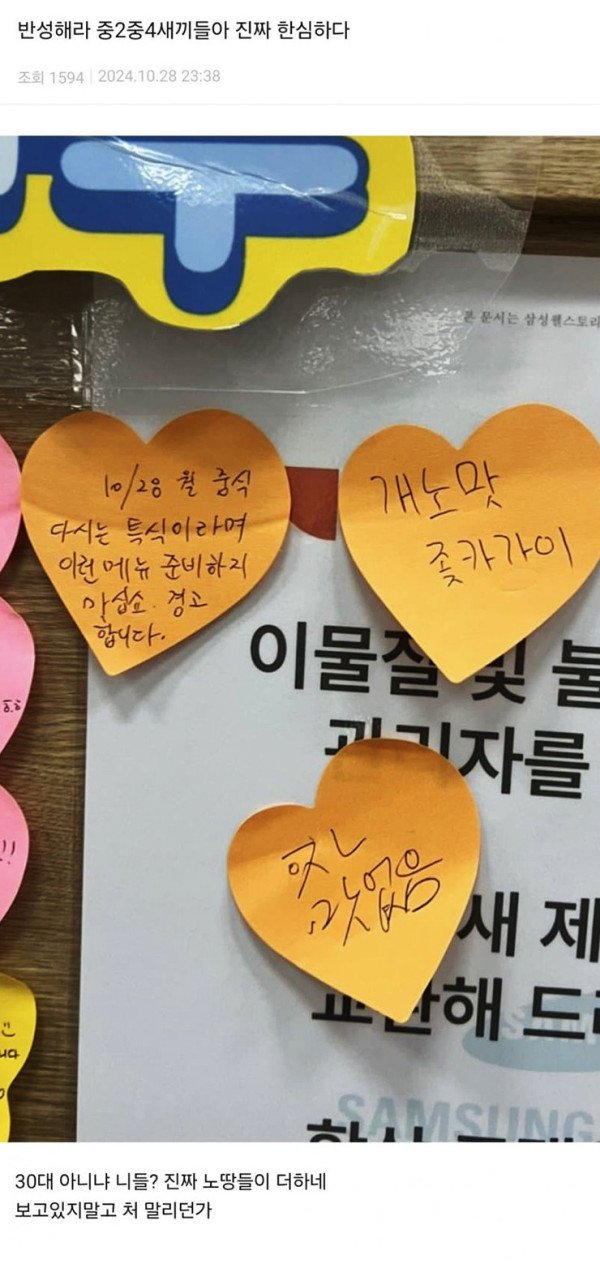 반성해라 중2중4새끼들아 진짜 한심하다
조회 1594 | 2024.10.28 23:38
본 문서는 삼성웰스토리
10/28 월 중식
다시는 특식이라며
이런메뉴 준비하지
마십쇼. 경고
합니다.
개노맛
좆카가이
이물질 및 불
관리자를
새 제
교환해 드
SAMSUNG
30대 아니냐 니들? 진짜 노땅들이 더하네
보고있지말고 처 말리던가